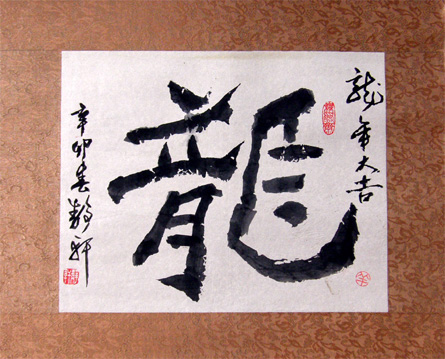 龍年大吉
龍
辛卯春靜軒